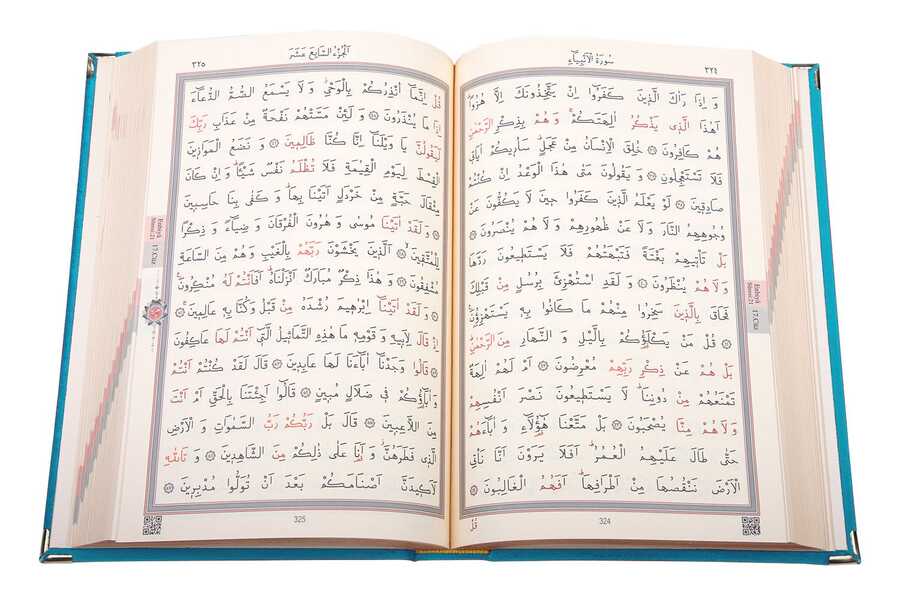 ٣٢٤
سُورَةُ الْاَنْبِيَاءِ
وَ اِذَا رَاٰكَ الَّذ۪ينَ كَفَرُٓوا اِنْ يَتَّخِذُونَكَ اِلَّا هُزُوًاۜ
اَهٰذَا الَّذ۪ي يَذْكُرُ اٰلِهَتَكُمْۚ وَ هُمْ بِذِكْرِ الرَّحْمٰنِ
هُمْ كَافِرُونَ ﴿٣٦﴾ خُلِقَ الْاِنْسَانُ مِنْ عَجَلٍۜ سَاُر۪يكُمْ اٰيَات۪ي
فَلَا تَسْتَعْجِلُونِ ﴿٣٧﴾ وَ يَقُولُونَ مَتٰى هٰذَا الْوَعْدُ اِنْ كُنْتُمْ
صَادِق۪ينَ ﴿٣٨﴾ لَوْ يَعْلَمُ الَّذ۪ينَ كَفَرُوا ح۪ينَ لَا يَكُفُّونَ عَنْ
وُجُوهِهِمُ النَّارَ وَ لَا عَنْ ظُهُورِهِمْ وَ لَا هُمْ يُنْصَرُونَ ﴿٣٩﴾
بَلْ تَأْت۪يهِمْ بَغْتَةً فَتَبْهَتُهُمْ فَلَا يَسْتَط۪يعُونَ رَدَّهَا
وَ لَا هُمْ يُنْظَرُونَ ﴿٤٠﴾ وَ لَقَدِ اسْتُهْزِئَ بِرُسُلٍ مِنْ قَبْلِكَ
فَحَاقَ بِالَّذ۪ينَ سَخِرُوا مِنْهُمْ مَا كَانُوا بِه۪ يَسْتَهْزِؤُ۫نَ
﴿٤١﴾ قُلْ مَنْ يَكْلَؤُ۬كُمْ بِالَّيْلِ وَ النَّهَارِ مِنَ الرَّحْمٰنِۜ
بَلْ هُمْ عَنْ ذِكْرِ رَبِّهِمْ مُعْرِضُونَ ﴿٤٢﴾ اَمْ لَهُمْ اٰلِهَةٌ
تَمْنَعُهُمْ مِنْ دُونِنَاۜ لَا يَسْتَط۪يعُونَ نَصْرَ اَنْفُسِهِمْ
وَ لَا هُمْ مِنَّا يُصْحَبُونَ ﴿٤٣﴾ بَلْ مَتَّعْنَا هٰٓؤُ۬لَٓاءِ وَ اٰبَٓاءَهُمْ
حَتّٰى طَالَ عَلَيْهِمُ الْعُمُرُۜ اَفَلَا يَرَوْنَ اَنَّا نَأْتِي
الْاَرْضَ نَنْقُصُهَا مِنْ اَطْرَافِهَاۜ اَفَهُمُ الْغَالِبُونَ ﴿٤٤﴾
324
قُلْ
Enbiyâ 17.Cüz
Sûresi 21
الْجُزْءُ السَّابِعَ عَشَرَ
٣٢٥
قُلْ اِنَّمَٓا اُنْذِرُكُمْ بِالْوَحْيِۘ وَ لَا يَسْمَعُ الصُّمُّ الدُّعَٓاءَ
اِذَا مَا يُنْذَرُونَ ﴿٤٥﴾ وَ لَئِنْ مَسَّتْهُمْ نَفْحَةٌ مِنْ عَذَابِ رَبِّكَ
لَيَقُولُنَّ يَا وَيْلَنَٓا اِنَّا كُنَّا ظَالِم۪ينَ ﴿٤٦﴾ وَ نَضَعُ الْمَوَاز۪ينَ
الْقِسْطَ لِيَوْمِ الْقِيٰمَةِ فَلَا تُظْلَمُ نَفْسٌ شَيْـًٔاۜ وَ اِنْ كَانَ
مِثْقَالَ حَبَّةٍ مِنْ خَرْدَلٍ اَتَيْنَا بِهَاۜ وَ كَفٰى بِنَا حَاسِب۪ينَ
﴿٤٧﴾ وَ لَقَدْ اٰتَيْنَا مُوسٰى وَ هٰرُونَ الْفُرْقَانَ وَ ضِيَٓاءً وَ ذِكْرًا
لِلْمُتَّق۪ينَۙ ﴿٤٨﴾ اَلَّذ۪ينَ يَخْشَوْنَ رَبَّهُمْ بِالْغَيْبِ وَ هُمْ مِنَ السَّاعَةِ
مُشْفِقُونَ ﴿٤٩﴾ وَ هٰذَا ذِكْرٌ مُبَارَكٌ اَنْزَلْنَاهُۜ اَفَاَنْتُمْ لَهُ مُنْكِرُونَ۟
﴿٥٠﴾ وَ لَقَدْ اٰتَيْنَٓا اِبْرٰه۪يمَ رُشْدَهُ مِنْ قَبْلُ وَ كُنَّا بِه۪ عَالِم۪ينَۚ ﴿٥١﴾
اِذْ قَالَ لِاَب۪يهِ وَ قَوْمِه۪ مَا هٰذِهِ التَّمَاث۪يلُ الَّت۪ٓي اَنْتُمْ لَهَا عَاكِفُونَ
﴿٥٢﴾ قَالُوا وَجَدْنَٓا اٰبَٓاءَنَا لَهَا عَابِد۪ينَ ﴿٥٣﴾ قَالَ لَقَدْ كُنْتُمْ اَنْتُمْ
وَ اٰبَٓاؤُ۬كُمْ ف۪ي ضَلَالٍ مُب۪ينٍ ﴿٥٤﴾ قَالُٓوا اَجِئْتَنَا بِالْحَقِّ اَمْ اَنْتَ
مِنَ اللَّاعِب۪ينَ ﴿٥٥﴾ قَالَ بَلْ رَبُّكُمْ رَبُّ السَّمٰوَاتِ وَ الْاَرْضِ
الَّذ۪ي فَطَرَهُنَّۘ وَ اَنَا۬ عَلٰى ذٰلِكُمْ مِنَ الشَّاهِد۪ينَ ﴿٥٦﴾ وَ تَاللّٰهِ
لَاَك۪يدَنَّ اَصْنَامَكُمْ بَعْدَ اَنْ تُوَلُّوا مُدْبِر۪ينَ ﴿٥٧﴾
325
Enbiyâ 17.Cüz
Sûresi 21